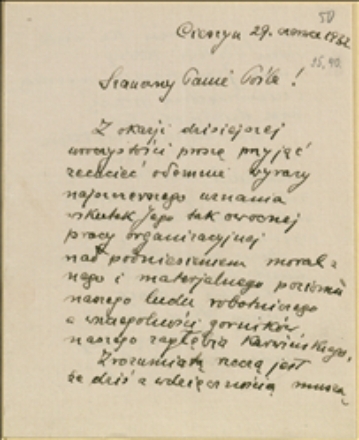 50
Cieszyn 29. czerwca 1932
Szanowny Panie Pośle!
Z okazji dzisiejszej
uroczystości proszę przyjąć
zechcieć odemnie wyrazy
najszczernego uznania
wskutek Jego tak owocnej
pracy organizacyjnej
nad podniesieniem moral-
nego i materjalnego poziomu
naszego ludu robotniczego
a w szczególności górników
naszego zagłębia Karwińskiego.
Zrozumiałą rzeczą jest
że dziś z wdzięcznością muszą